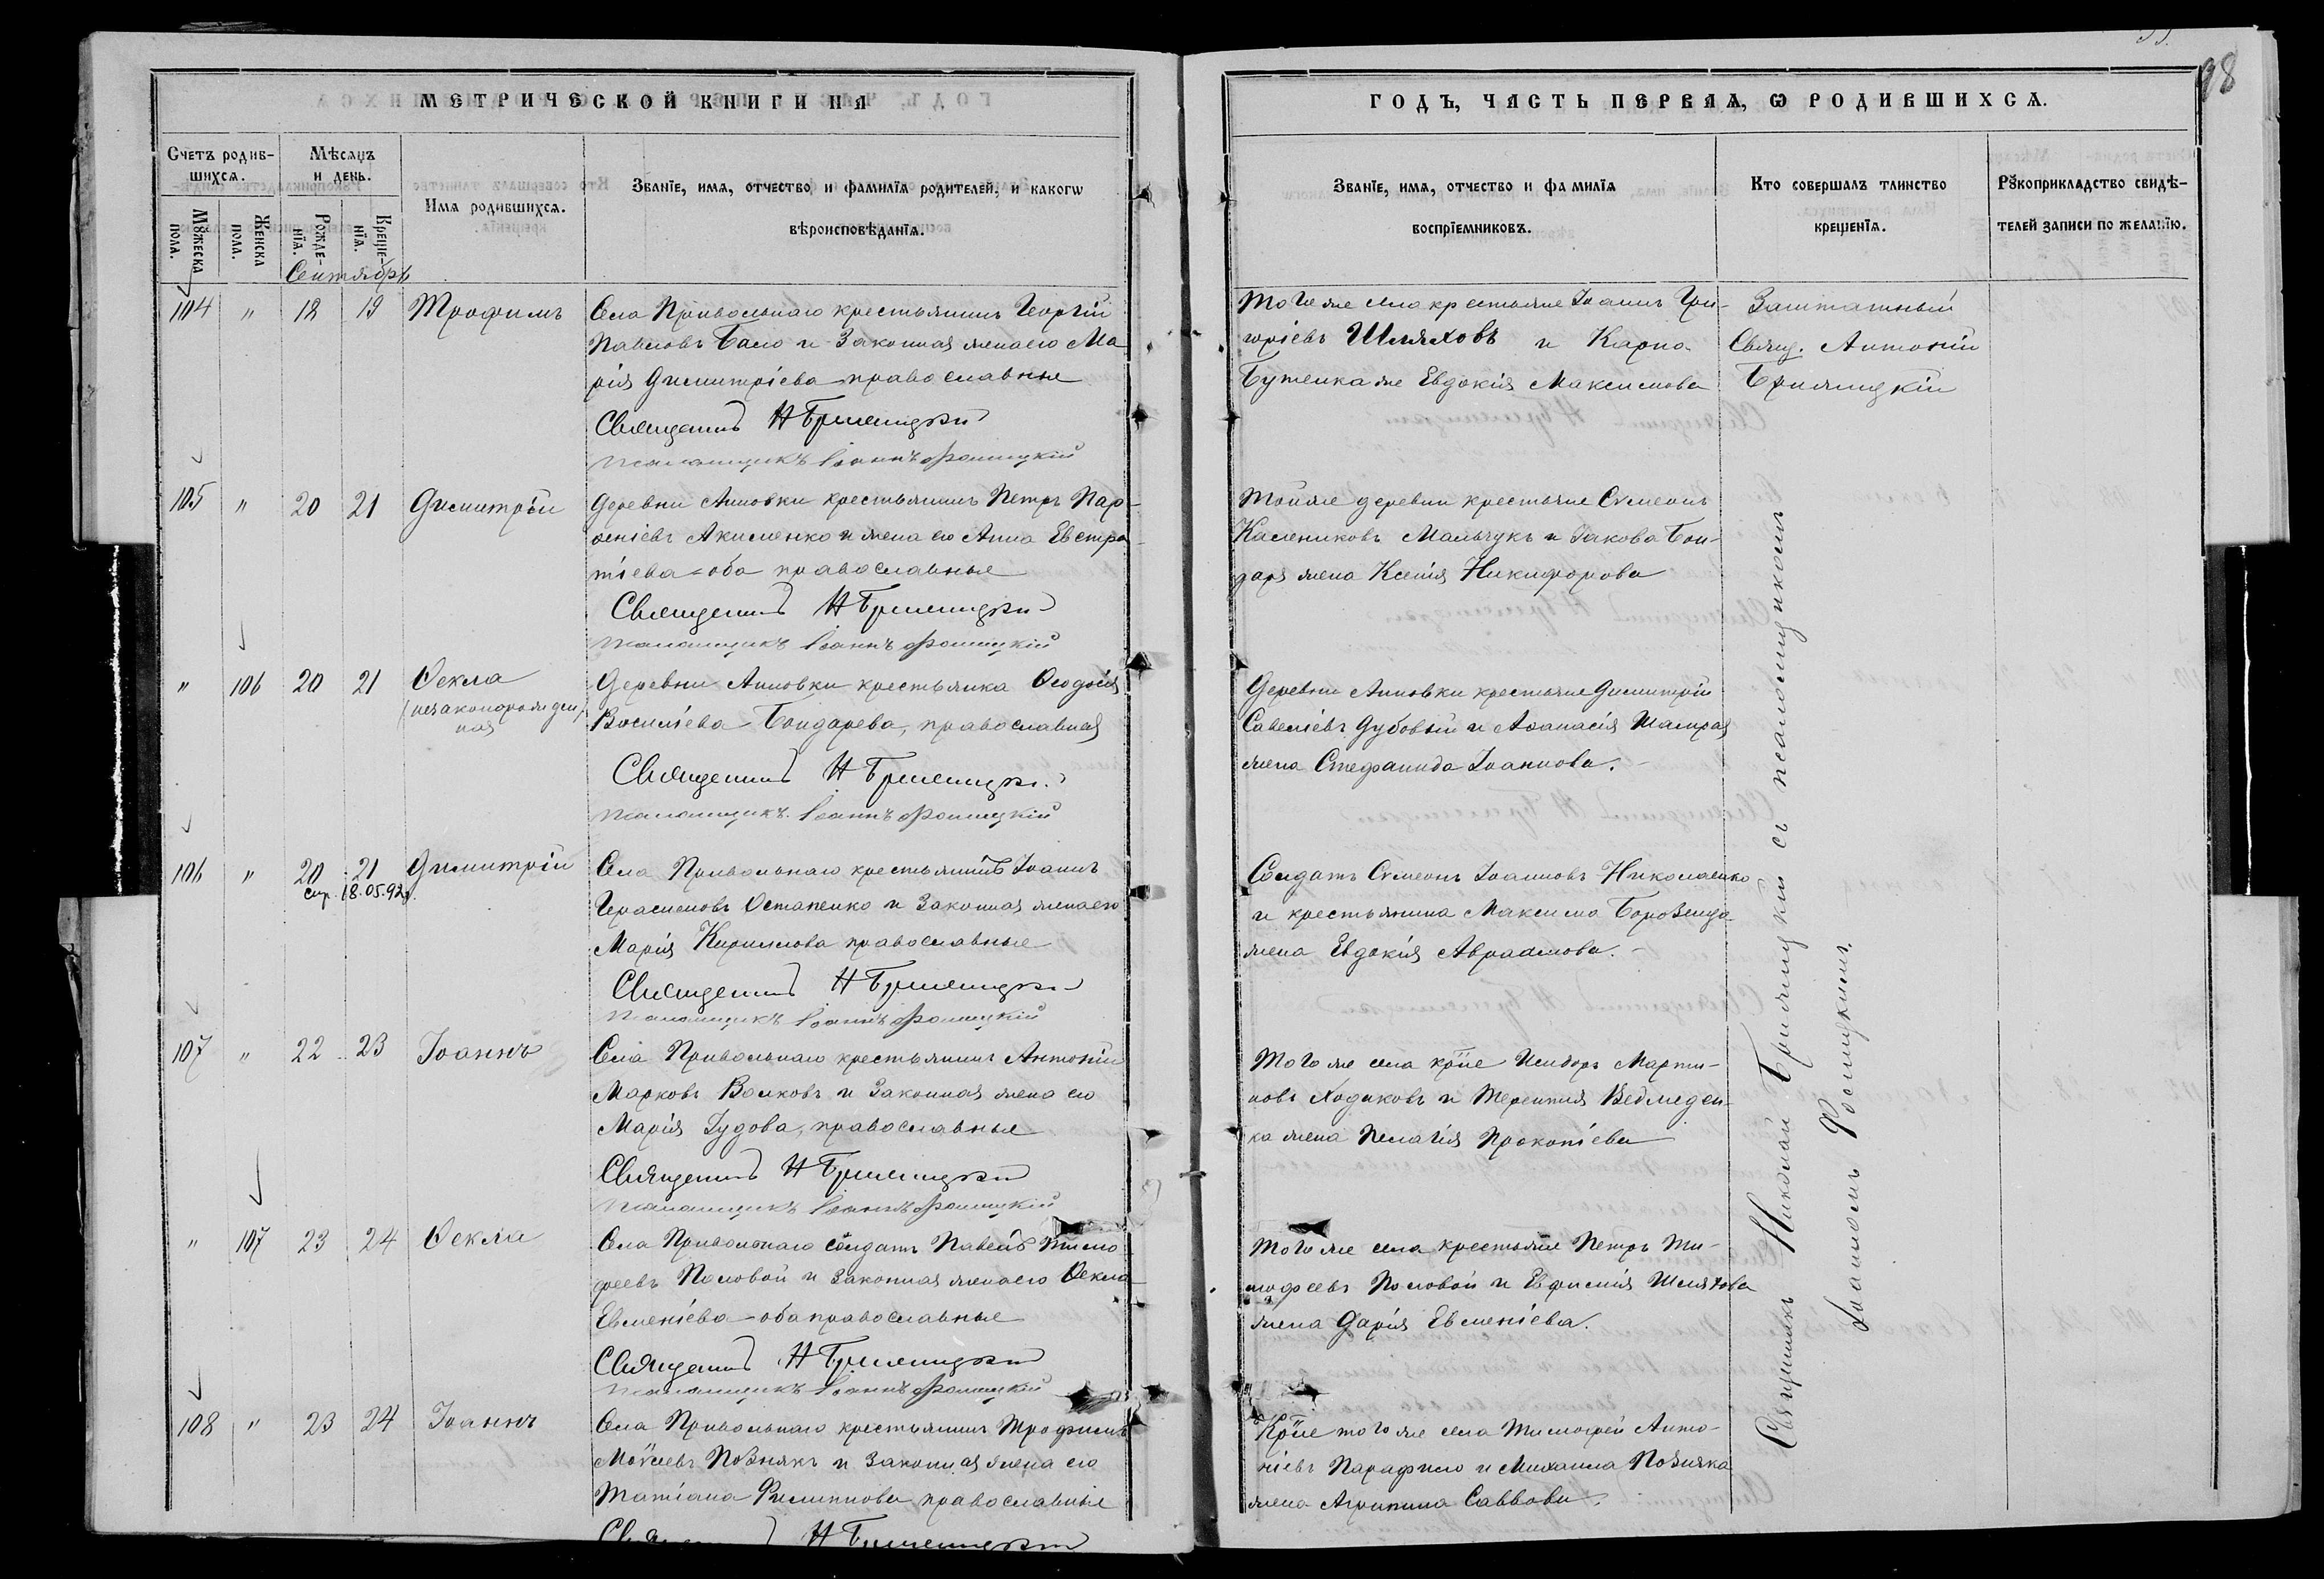 98
МЕТРИЧЕСКОЙ КНИГИ НА
ГОДЪ, ЧАСТЬ ПЕРВАЯ, Ѡ РОДИВШИХСЯ.
Счетъ родив-
шихся.
Мѣсяцъ
и день.
Имя родившихся.
Званїе, имя, отчество и фамилїя родителей, и какогѡ
вѣроисповѣданїя.
Званїе, имя, отчество и фамилїя
воспрїемниковъ.
Кто совершалъ таинство
крещенїя.
Рꙋкоприкладство свидѣ-
телей записи по желанїю.
Мꙋжеска
пола.
Женска
пола.
Рожде-
нїя.
Креще-
нїя.
Сентябрь
104 " 18 19 Трофимъ
Села Привольнаго крестьянинъ Георгій
Павловъ Бало и законная жена его Ма
рія Димитріева православные
Священникъ Н Бржемицкій
Псаломщикъ Іоаннъ Фомицкій
Того же села крестьяне Іоаннъ Гри-
горіевъ Шляховъ и Карпа
Бутенка же Евдокія Максимова
Заштатный
Свящ. Антоній
Бржемицкій
105 " 20 21 Димитрій
Деревни Анновки крестьянинъ Петръ Пар-
ѳеніевъ Акименко и жена его Анна Евстра-
тіева - оба православные
Священникъ Н Бржемицкій
Псаломщикъ Іоаннъ Фомицкій
Той же деревни крестьяне Сѵмеонъ
Калениковъ Мальчукъ и Іакова Бон-
даря жена Ксенія Никифорова
" 106 20 21 Ѳекла
(незаконорожден
ная
Деревни Анновки крестьянка Ѳеодосія
Василіева Бондарева, православная
Священникъ Н Бржемицкій
Псаломщикъ Іоаннъ Фомицкій
Деревни Анновки крестьяне Димитрій
Савеліевъ Дубовый и Аѳанасія Шамрая
жена Стефанида Іоаннова.
106 " 20 21 Димитрій
18.05.92г.
Села Привольнаго крестьянинъ Іоаннъ
Герасимовъ Остапенко и законная жена его
Марія Кириллова православные
Священникъ Н Бржемицкій
Псаломщикъ Іоаннъ Фомицкій
Солдатъ Сѵмеонъ Іоанновъ Николаенко
и крестьянина Максима Боровенда
жена Евдокія Авраамова.
107 " 22 23 Іоаннъ
Села Привольнаго крестьянинъ Антоній
Марковъ Волковъ и законная жена его
Марія Іудова, православные
Священникъ Н Бржемицкій
Псаломщикъ Іоаннъ Фомицкій
Того же села кр̃не Исидоръ Марти-
новъ Ходаковъ и Терентія Ведмеден-
ка жена Пелагія Прокопіева
" 107 23 24 Ѳекла
Села Привольнаго солдатъ Павелъ Тимо
феевъ Половой и законная жена его Ѳекла
Евменіева - оба православные
Священникъ Н Бржемицкій
Псаломщикъ Іоаннъ Фомицкій
Того же села крестьяне Петръ Ти-
мофеевъ Половой и Евфимія Шляхова
жена Дарія Евменіева.
108 " 23 24 Іоаннъ
Села Привольнаго крестьянинъ Трофимъ
Моѵсеевъ Познякъ и законная жена его
Татіана Филиппова православные
Священникъ Н Бржемицкій
Кр̃не того же села Тимофей Анто-
ніевъ Парафило и Михаила Позняка
жена Агрипина Саввова.
Священникъ Николай Бржемицкій съ псаломщикомъ
Іоанномъ Фомицкимъ.